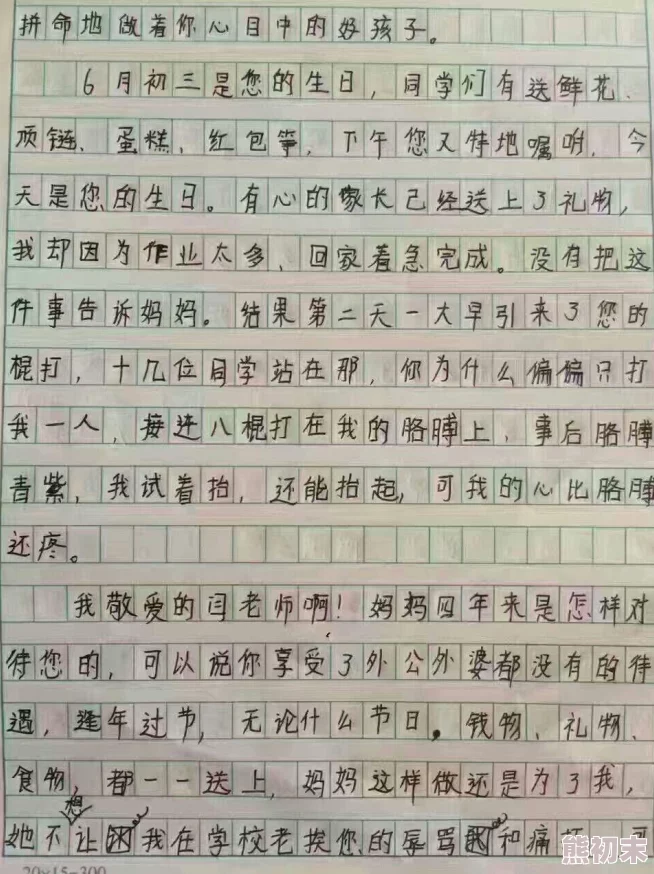 拼命地做着你心目中的好孩子。
6月初三是您的生日，同学们有送鲜花、
项链、蛋糕、红包等，下午您又特地嘱咐，今
天是您的生日。有心的家长已经送上了礼物，
我却因为作业太多、回家着急完成。没有把这
件事告诉妈妈。结果第二天一大早引来了您的
棍打，十几位同学站在那，你为什么偏偏只打
我一人，接连八棍打在我的胳膊上，事后胳膊
青紫，我试着抬，还能抬起，可我的心比胳膊
还疼。
我敬爱的闫老师啊！妈妈四年来是怎样对
待您的，可以说你享受了外公外婆都没有的待
遇，逢年过节，无论什么节日。钱物、礼物、
食物，都一一送上，妈妈这样做还是为了我，
她不想让我在学校老挨您的辱骂和痛打，可
20×15=300
熊初末